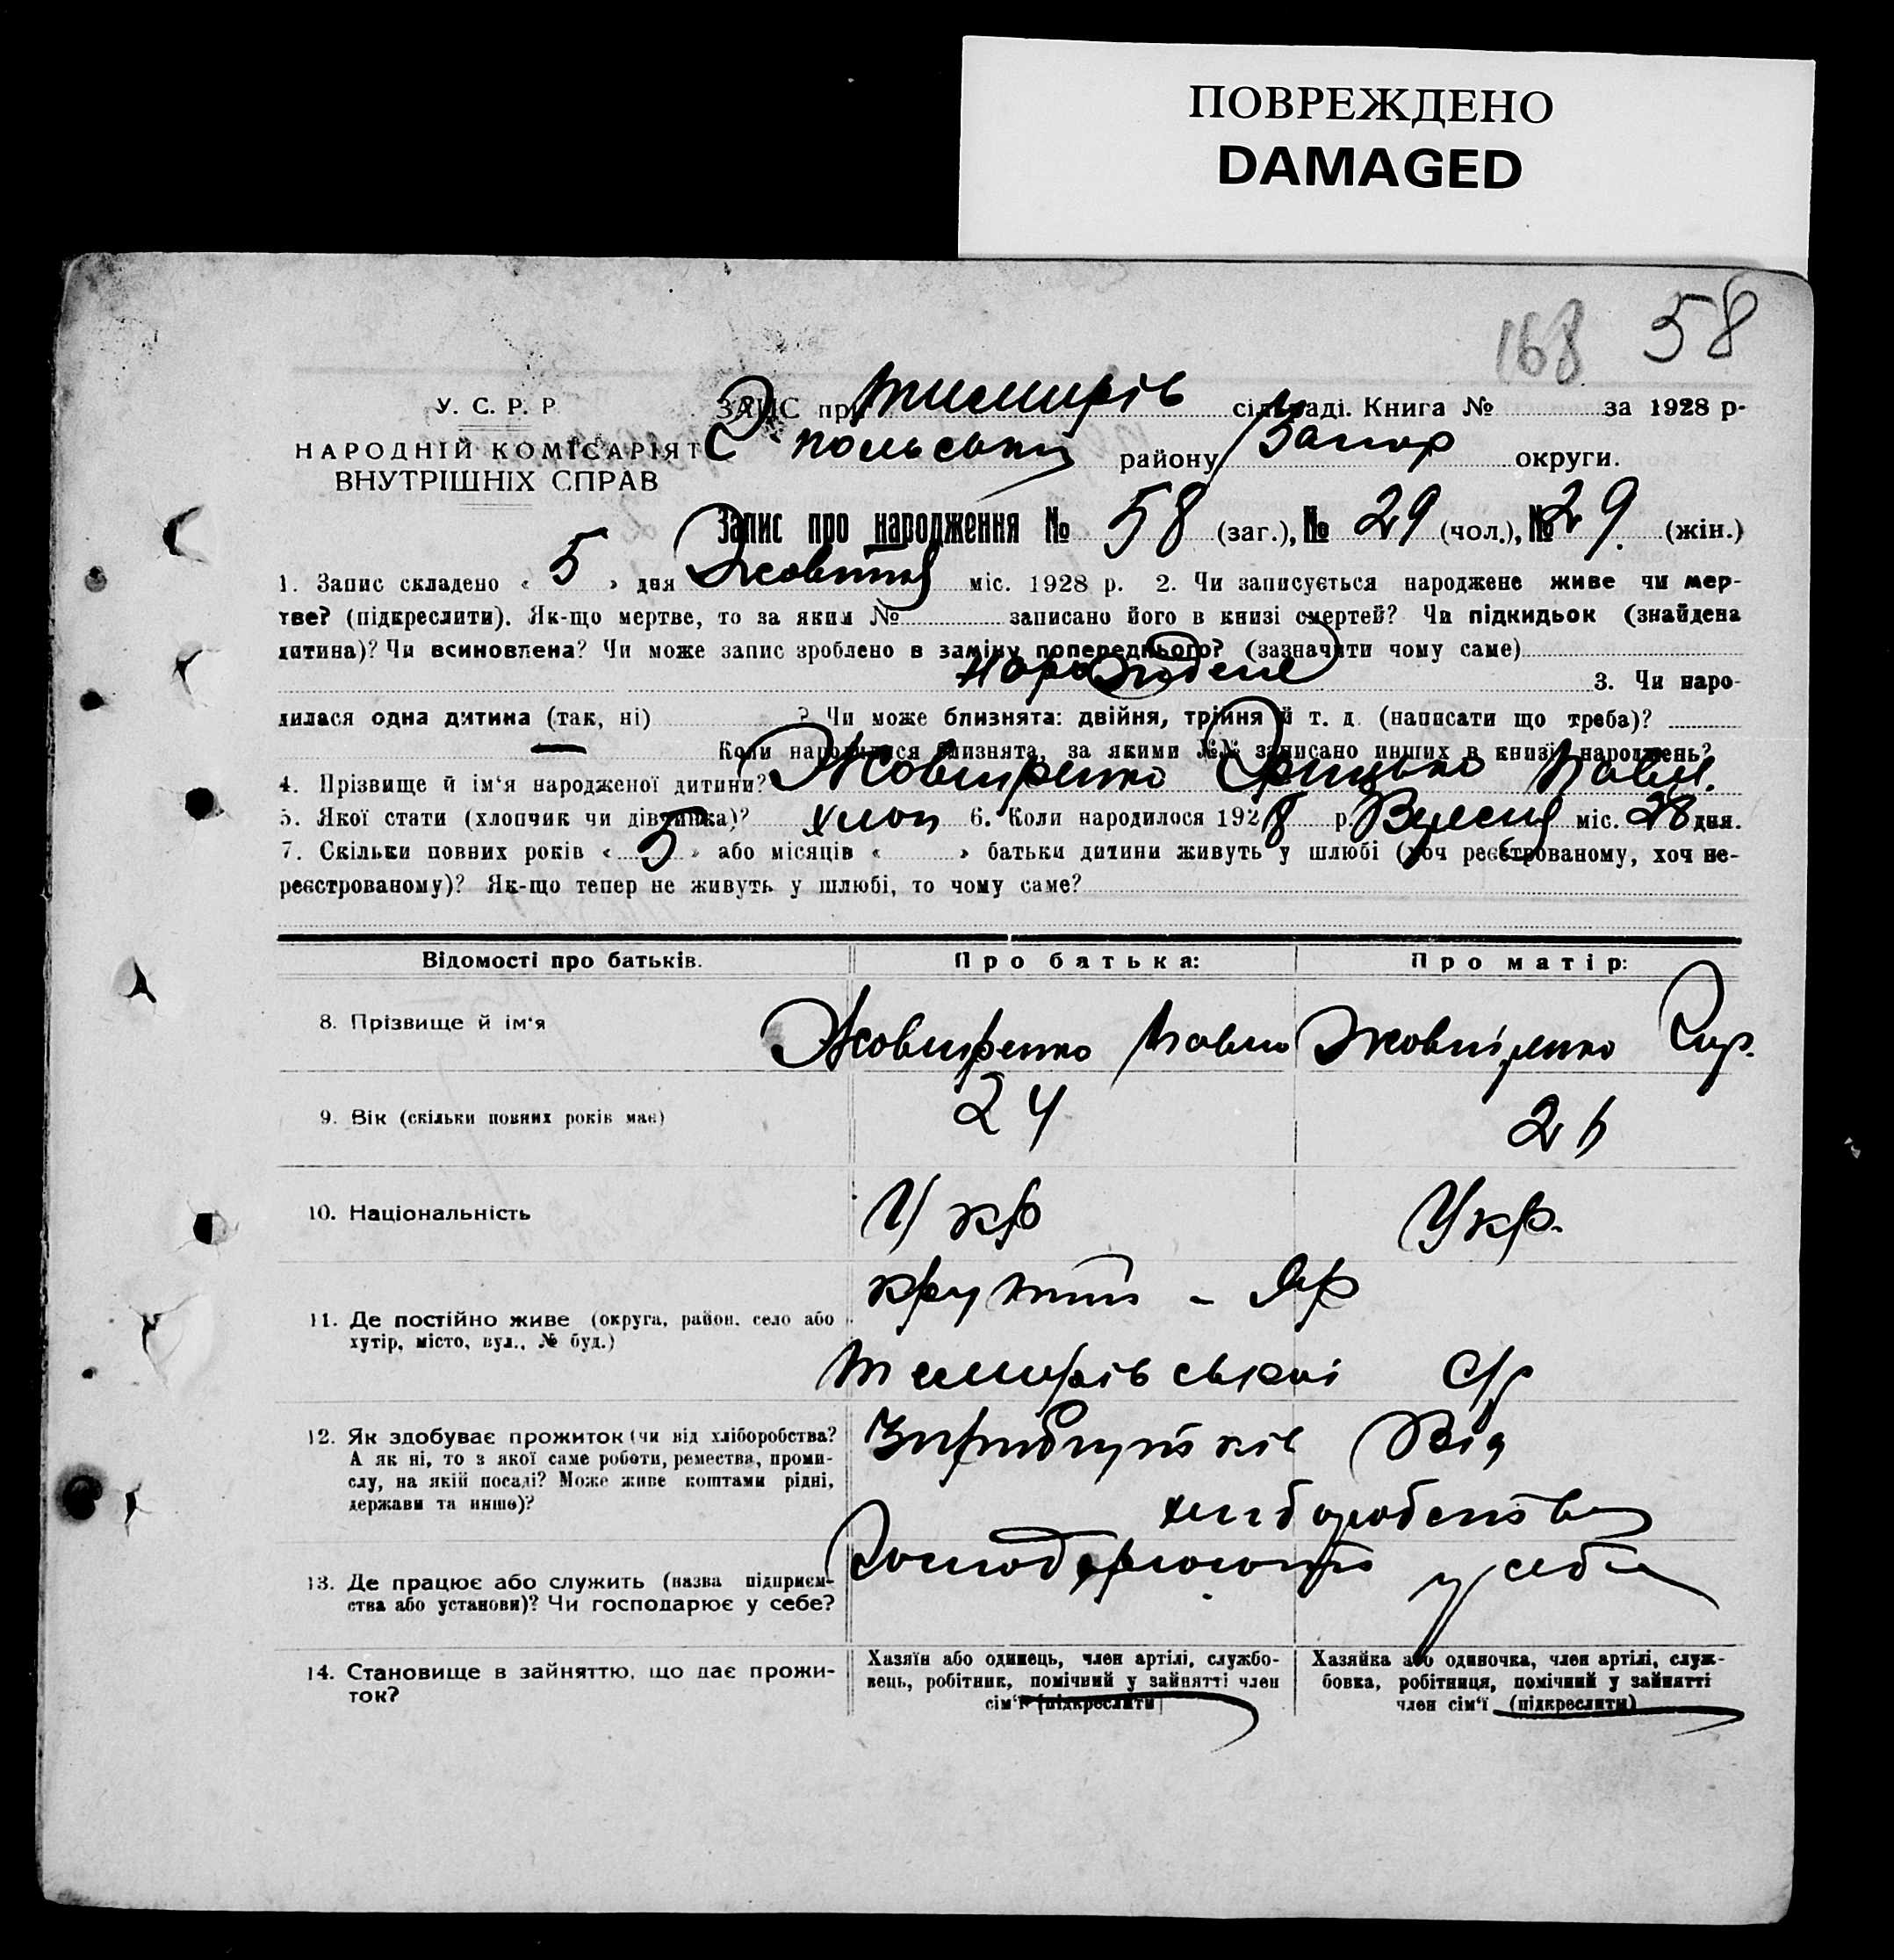 ПОВРЕЖДЕНО
DAMAGED
168 58
У. С. Р. Р.
НАРОДНІЙ КОМІСАРІЯТ
ВНУТРІШНІХ СПРАВ
ЗАПИС при Темирів сільраді. Книга № за 1928 р.
польський району Запор округи.
Запис про народження № 58 (заг.), № 29 (чол.), № 29. (жін.)
1. Запис складено « 5 » дня Жовтня міс. 1928 р. 2. Чи записується народжене живе чи мер-
тве? (підкреслити). Як-що мертве, то за яким № записано його в книзі смертей? Чи підкидьок (знайдена
дитина)? Чи всиновлена? Чи може запис зроблено в заміну попереднього? (зазначити чому саме)
3. Чи наро-
дилася одна дитина (так, ні) ? Чи може близнята: двійня, трійня й т. д. (написати що треба)?
Коли народилися близнята, за якими №№ записано инших в книзі народжень?
4. Прізвище й ім‘я народженої дитини? Жовтиренко Грицько Павл.
5. Якої стати (хлопчик чи дівчинка)? хлоп 6. Коли народилося 1928 р. Вересня міс. 28 дня.
7. Скільки повних років « 5 » або місяців « » батьки дитини живуть у шлюбі (хоч реєстрованому, хоч не-
реєстрованому)? Як-що тепер не живуть у шлюбі, то чому саме?
Відомості про батьків. Про батька: Про матір:
8. Прізвище й ім‘я Жовтиренко Павло Жовтіренко
9. Вік (скільки повних років має) 24
10. Національність Укр Укр.
11. Де постійно живе (округа, район, село або
хутір, місто, вул., № буд.)
Крутий - Яр
Темирівської С/р
12. Як здобуває прожиток (чи від хліборобства?
А як ні, то з якої саме роботи, ремества, проми-
слу, на якій посаді? Може живе коштами рідні,
держави та инше)?
Від
хліборобства
13. Де працює або служить (назва підприєм-
ства або установи)? Чи господарює у себе?
Господарюють у себе
14. Становище в зайняттю, що дає прожи-
ток?
Хазяїн або одинець, член артілі, службо-
вець, робітник, помічний у зайнятті член
сім‘ї (підкреслити)
Хазяйка або одиночка, член артілі, служ-
бовка, робітниця, помічний у зайнятті
член сім‘ї (підкреслити)